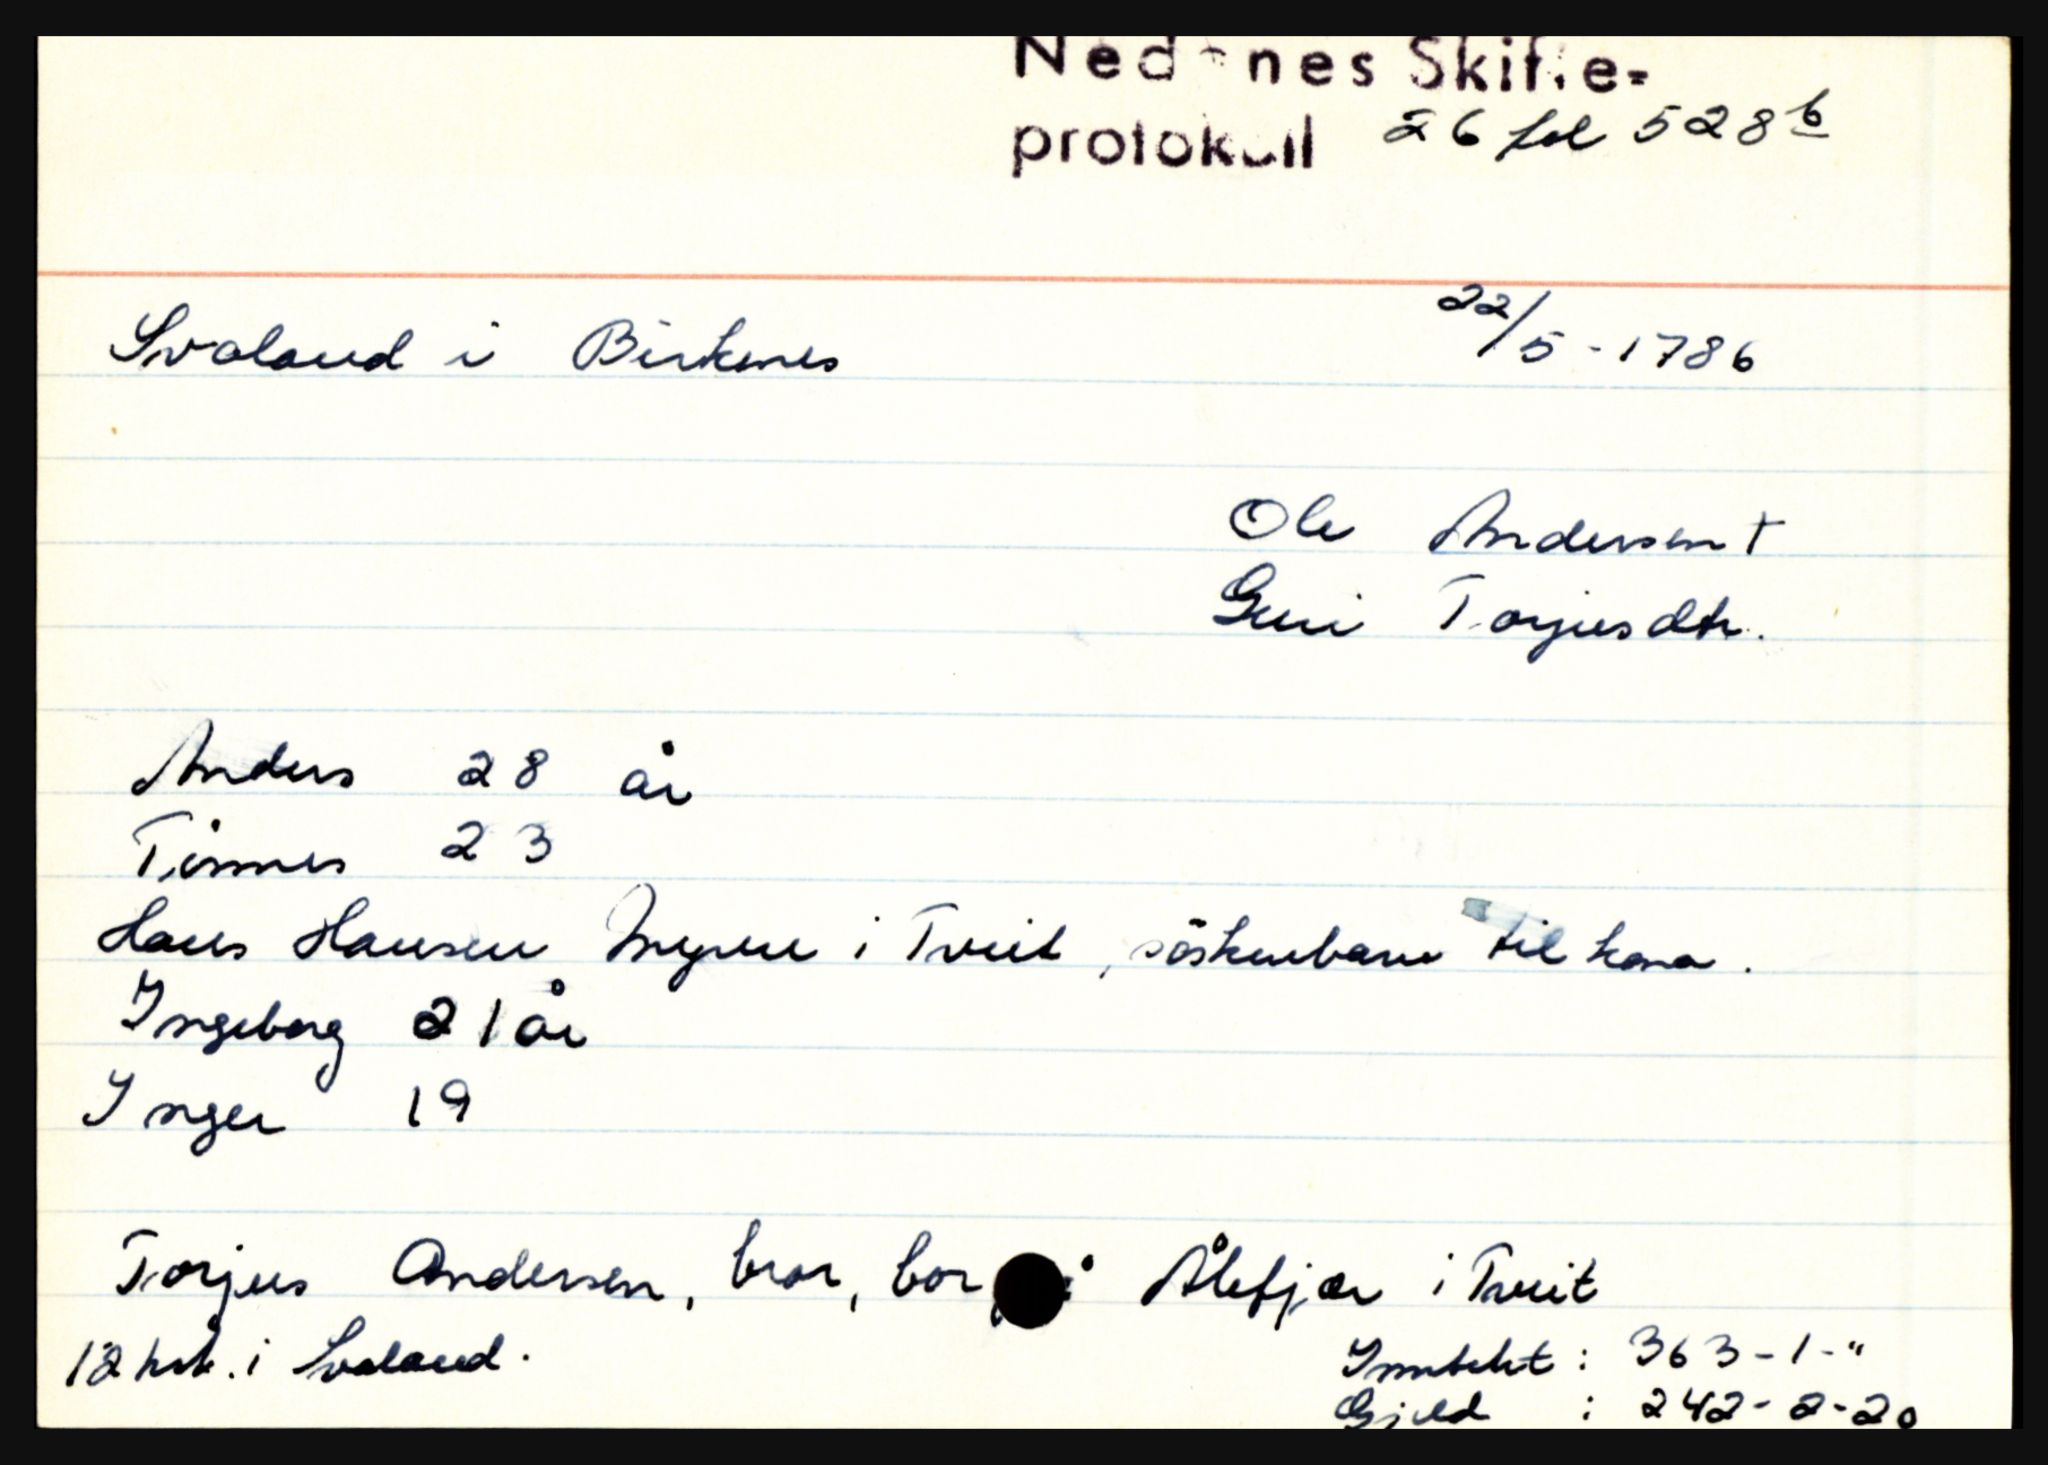 Nedenes Skifte-
protokoll 26 fol 528 b
Svaland i Birkenes 22/5 - 1786
Ole Andersen †
Guri Torjusdtr.
Anders 28 år
Tønnes 23
Hans Hansen Myrene i Tveit, söskenbarn til kona.
Ingeborg 21 år
Inger 19
Torjus Andersen, bror, bor på Ålefjær i Tveit
12 hd. i Svaland.
Inntekt : 363 - 1 - "
Gjeld : 242 - 2 - 20